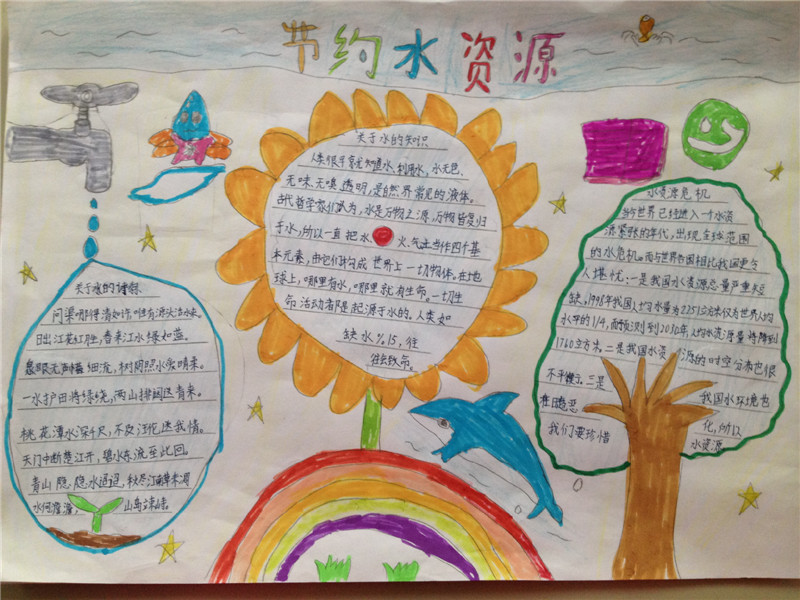 节约水资源
关于水的诗词
问渠那得清如许唯有源头活水来。
日出江花红胜火,春来江水绿如蓝。
泉眼无声惜细流,树阴照水爱晴柔。
一水护田将绿绕,两山排闼送青来。
桃花潭水深千尺,不及汪伦送我情。
天门中断楚江开,碧水东流至此回。
青山隐隐水迢迢,秋尽江南草木凋
水何澹澹,山岛竦峙。
关于水的知识
人类很早就知道水、利用水,水无色、
无味、无嗅、透明,是自然界常见的液体。
古代哲学家们认为,水是万物之源,万物皆复归
于水,所以一直把水、火、气、土当作四个基
本元素,由它们构成世界上一切物体。在地
球上,哪里有水,哪里就有生命。一切生
命活动者隆起源于水的。人类如
缺水%15,往
往会致命。
水资源危机
当今世界已经进入一个水资
源紧张的年代,出现全球范围
的水危机。而与世界各国相比我国更令
人堪忧:一是我国水资源总量严重
缺,1998年我国人均水量为2251立方米仅为世界人均
水平的1/4,而预测到2010年人均水资源量将降到
1760立方米。二是我国水资源的时空分布也很
不平衡。三是我国水环境也
在日趋恶化,所以
我们要珍惜水资源